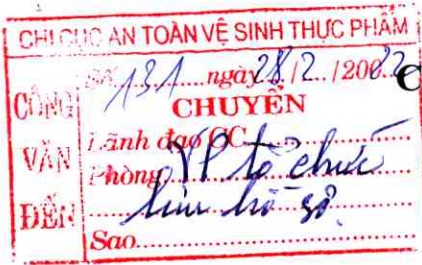 CHI CỤC AN TOÀN VỆ SINH THỰC PHẨM
CÔNG VĂN ĐẾN
Số 131 ngày 28/2/2002
CHUYỂN
Lãnh đạo CC
Phòng VP tổ chức
lưu hồ sơ
Sao